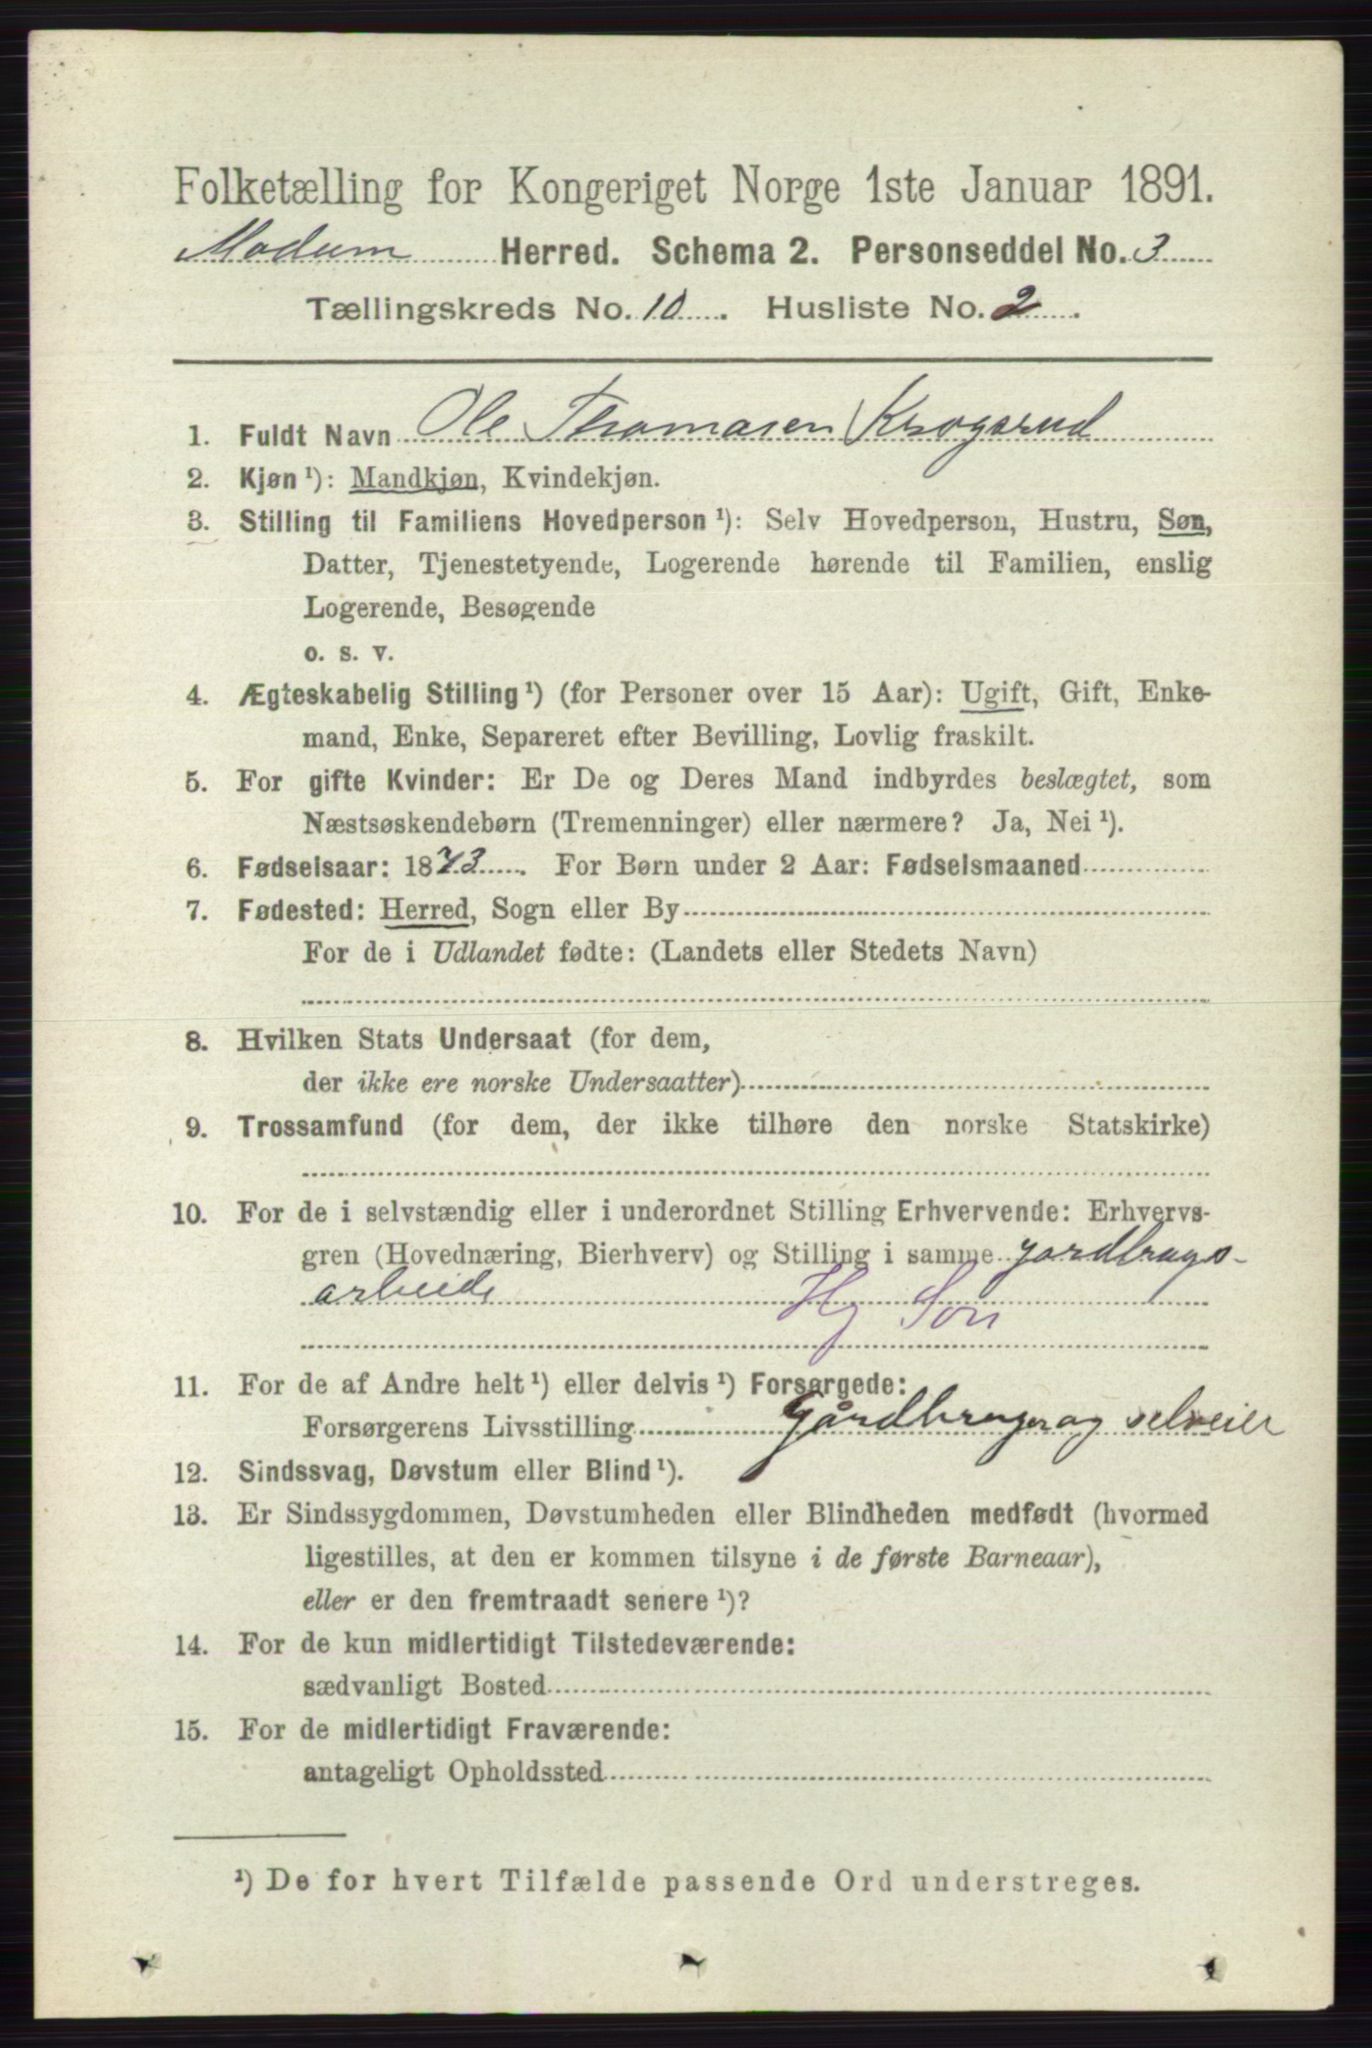 Folketælling for Kongeriget Norge 1ste Januar 1891.
Modum Herred. Schema 2. Personseddel No. 3
Tællingskreds No. 10. Husliste No. 2.
1. Fuldt Navn Ole Thomasen Krogsrud
2. Kjøn ¹): Mandkjøn, Kvindekjøn.
3. Stilling til Familiens Hovedperson ¹): Selv Hovedperson, Hustru, Søn,
Datter, Tjenestetyende, Logerende hørende til Familien, enslig
Logerende, Besøgende
o. s. v.
4. Ægteskabelig Stilling ¹) (for Personer over 15 Aar): Ugift, Gift, Enke-
mand, Enke, Separeret efter Bevilling, Lovlig fraskilt.
5. For gifte Kvinder: Er De og Deres Mand indbyrdes beslægtet, som
Næstsøskendebørn (Tremenninger) eller nærmere? Ja, Nei ¹).
6. Fødselsaar: 1873. For Børn under 2 Aar: Fødselsmaaned
7. Fødested: Herred, Sogn eller By
For de i Udlandet fødte: (Landets eller Stedets Navn)
8. Hvilken Stats Undersaat (for dem,
der ikke ere norske Undersaatter)
9. Trossamfund (for dem, der ikke tilhøre den norske Statskirke)
10. For de i selvstændig eller i underordnet Stilling Erhvervende: Erhvervs-
gren (Hovednæring, Bierhverv) og Stilling i samme jordbrugs-
arbeide Hg Søn
11. For de af Andre helt ¹) eller delvis ¹) Forsørgede:
Forsørgerens Livsstilling Gårdbruger og selveier
12. Sindssvag, Døvstum eller Blind ¹).
13. Er Sindssygdommen, Døvstumheden eller Blindheden medfødt (hvormed
ligestilles, at den er kommen tilsyne i de første Barneaar),
eller er den fremtraadt senere ¹)?
14. For de kun midlertidigt Tilstedeværende:
sædvanligt Bosted
15. For de midlertidigt Fraværende:
antageligt Opholdssted
¹) De for hvert Tilfælde passende Ord understreges.